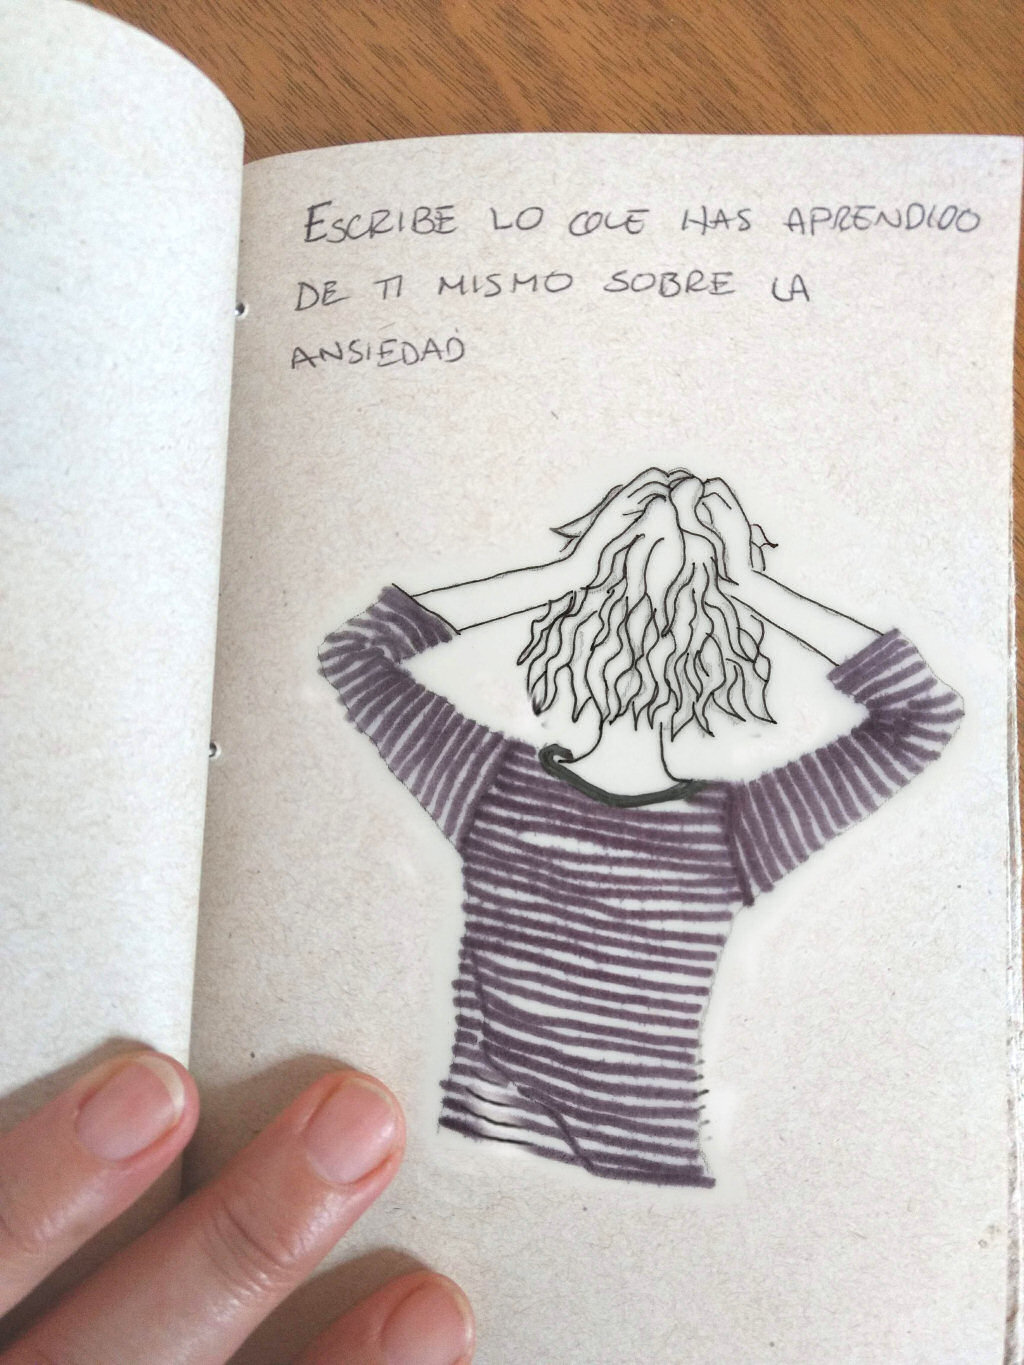 ESCRIBE LO QUE HAS APRENDIDO
DE TI MISMO SOBRE LA
ANSIEDAD